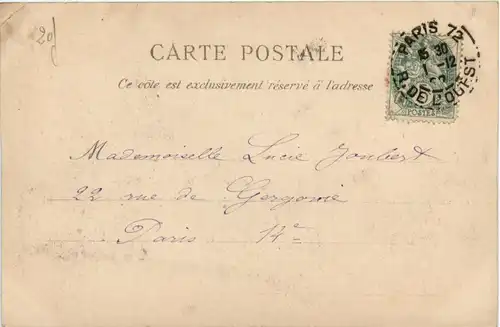 20f
CARTE POSTALE
Ce côté est exclusivement réservé à l'adresse
PARIS 72
5 30
1-12
R. DE L'OUEST
POSTES
Mademoiselle Lucie Joubert
22 rue de Gergovie
Paris 14e